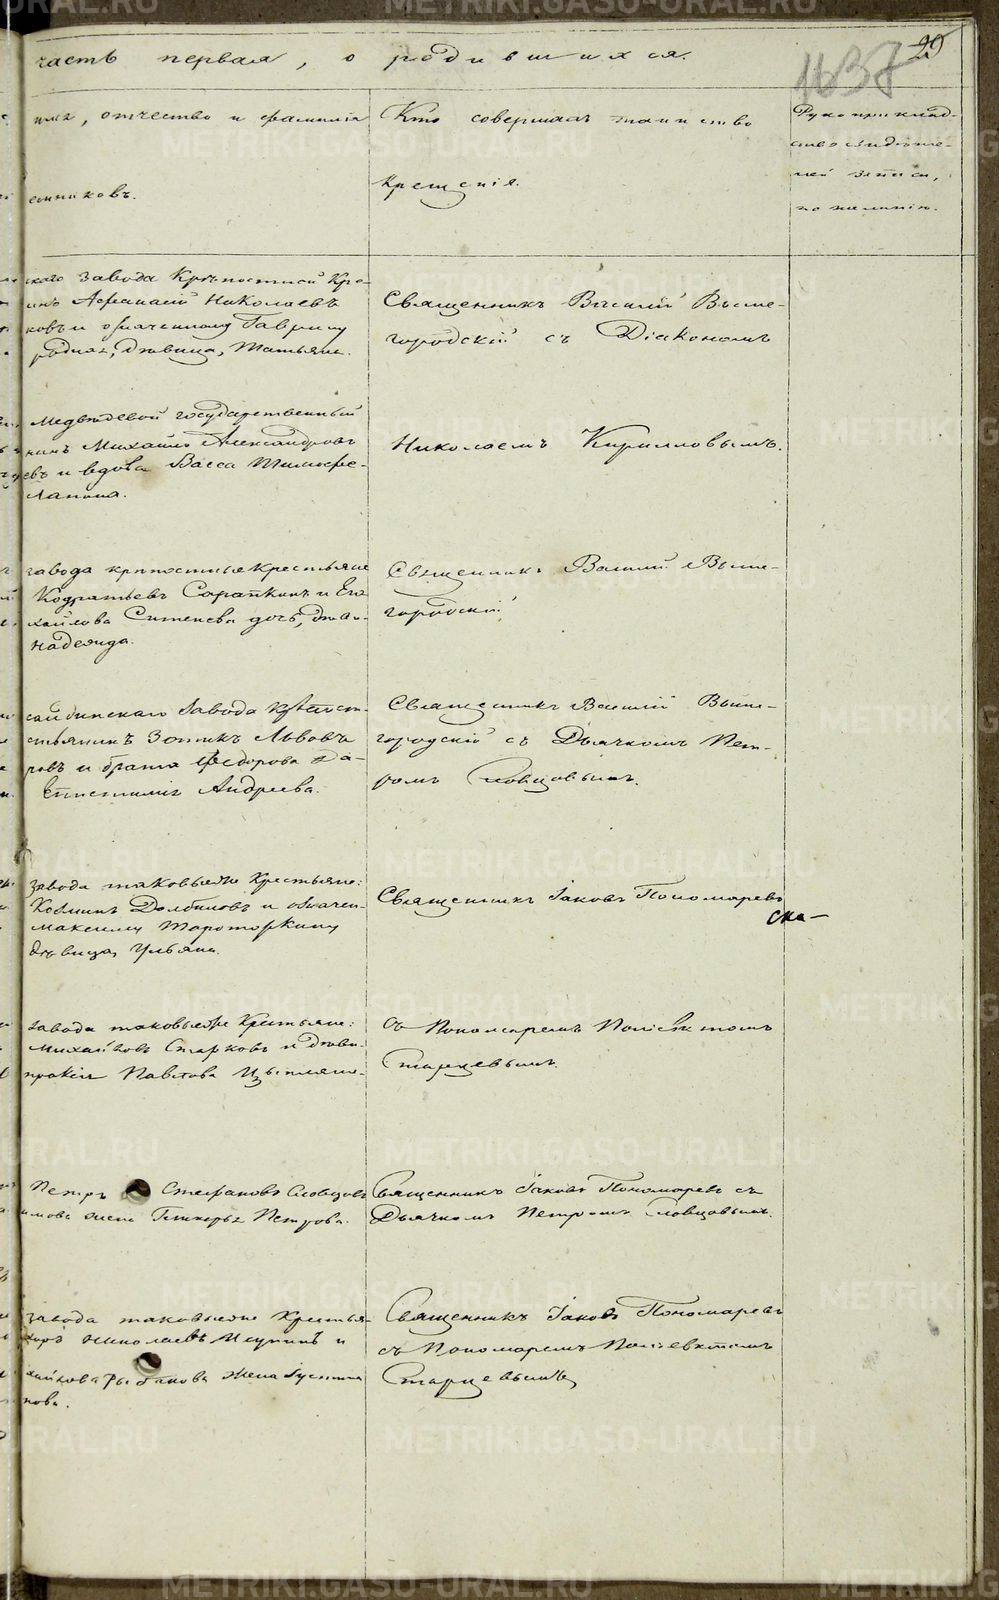 часть первая, о родившихся.
29
1137
имя, отчество и фамилія
емниковъ.
Кто совершалъ таинство
крещенія.
Рукоприклад-
ство свидѣте-
лей записи,
по желанію.
скаго завода Крѣпостной Кре-
инъ Афанасій Николаевъ
ковъ и означенному Гаврилу
родная, дѣвица, Татьяна.
Священникъ Василій Выше-
городскій съ Діакономъ
Медведевой государственный
нинъ Михайло Александровъ
евъ и вдова Васса Тимофе-
Лапина.
Николаемъ Кирилловымъ.
завода крѣпостные Крестьяне
Кодратьевъ Сорапкинъ и Ев
хайлова Ситенева дочь, дѣви-
Надежда.
Священникъ Василій Выше-
городскій
сайдинскаго завода крѣпост-
стьянинъ Зотикъ Львовъ
ровъ и брата Федорова
Епистимія Андреева.
Священникъ Василій Выше-
городскій съ Дьячкомъ Пет-
ромъ Словцовымъ.
завода таковые же Крестьяне:
Козминъ Долбиловъ и означен-
Максиму Тароторкину
дѣвица, Ульяна.
Священникъ Іаковъ Пономаревъ
ска-
завода таковые же Крестьяне:
Михайловъ Старковъ и дѣви-
пракія Павлова Цыпляно-
съ Пономаремъ Поліектомъ
Старцевымъ.
Петръ Стефановъ Словцовъ
имова жена Гликерья Петрова.
Священникъ Іаковъ Пономаревъ съ
Дьячкомъ Петромъ Словцовымъ.
завода таковые же Крестья-
Николаевъ и
хайлова Рыбакова жена
нова.
Священникъ Іаковъ Пономаревъ
съ Пономаремъ Поліевктомъ
Старцевымъ
METRIKI.GASO-URAL.RU